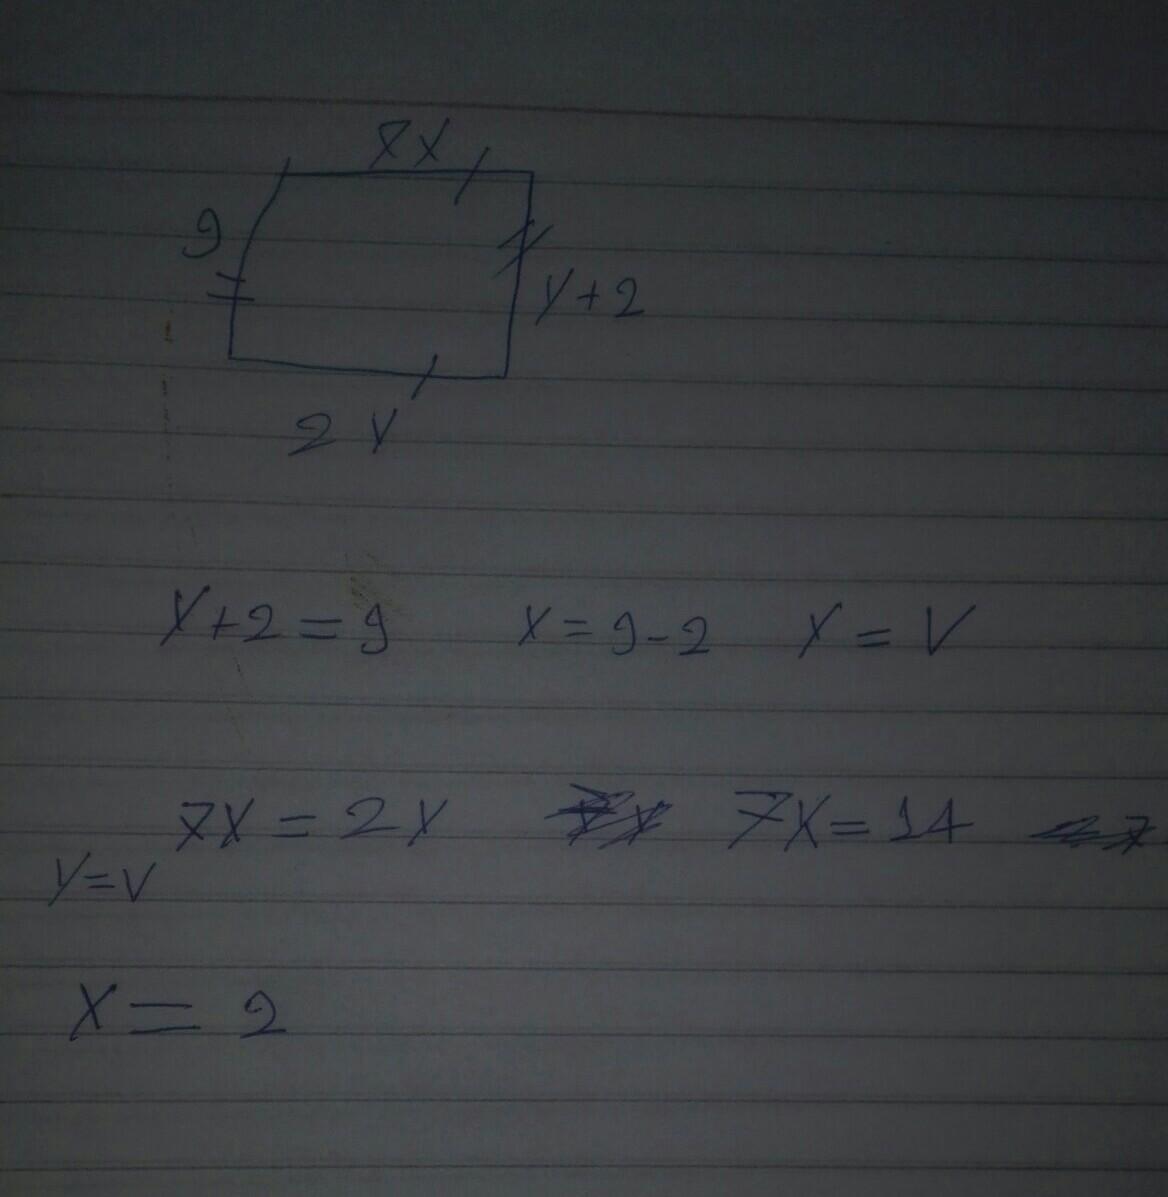 7X
9
y+2
2 y
y+2=9 x=9-2 y=V
7X=2y 7X=14
y=v
X=2